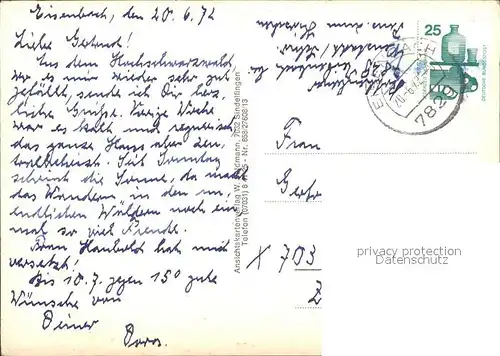 Eisenbach, den 20.6.72
Liebe Gertrud!
Aus dem Hochschwarzwald,
wo es mir wieder sehr gut
gefällt, sende ich Dir herz-
liche Grüße. Vorige Woche
war es kalt und regnerisch
das ganze Haus aber zen-
tralbeheizt. Seit Sonntag
scheint die Sonne, da macht
das Wandern in den un-
endlichen Wäldern noch ein-
mal so viel Freude.
Frau Haubold hat mich
versetzt!
Bis 10.7. gegen 15° gute
Wünsche von
Deiner
Ansichtskartenverlag W. 7032 Sindelfingen
Telefon (07031)
25
DEUTSCHE BUNDESPOST
EISENBACH
7829
Frau
Gertr
X 703
Z
privacy protection
Datenschutz